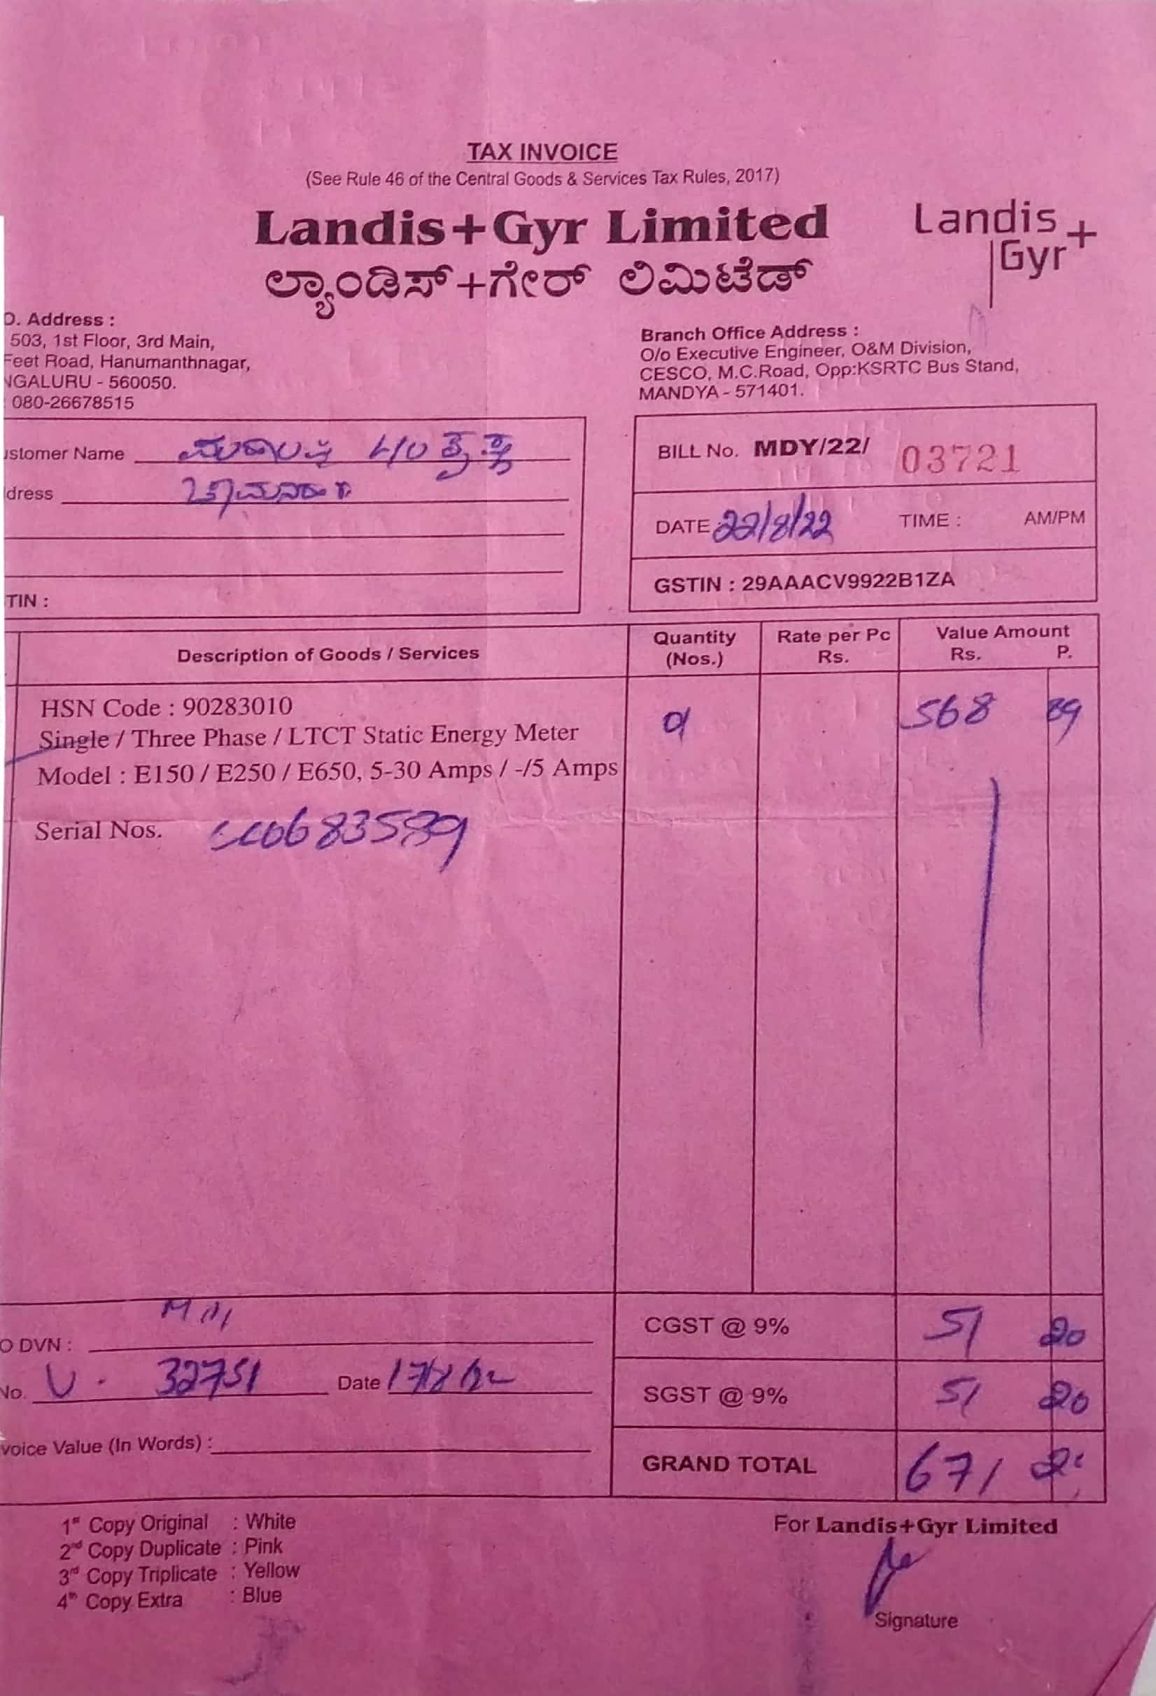 TAX INVOICE
(See Rule 46 of the Central Goods & Services Tax Rules, 2017)
Landis+Gyr Limited
Landis
Gyr+
ಲ್ಯಾಂಡಿಸ್+ಗೇರ್ ಲಿಮಿಟೆಡ್
O. Address :
503, 1st Floor, 3rd Main,
Feet Road, Hanumanthnagar,
NGALURU - 560050.
080-26678515
Branch Office Address :
O/o Executive Engineer, O&M Division,
CESCO, M.C.Road, Opp:KSRTC Bus Stand,
MANDYA - 571401.
ustomer Name
dress
TIN :
BILL No. MDY/22/ 03721
DATE 22/8/22 TIME : AM/PM
GSTIN : 29AAACV9922B1ZA
Description of Goods / Services Quantity (Nos.) Rate per Pc Rs. Value Amount Rs. P.
HSN Code : 90283010 01 568 89
Single / Three Phase / LTCT Static Energy Meter
Model : E150 / E250 / E650, 5-30 Amps / -/5 Amps
Serial Nos.
O DVN :
No. U. 32751 Date 17/8/22
voice Value (In Words) :
CGST @ 9% 51 20
SGST @ 9% 51 20
GRAND TOTAL 671
1st Copy Original : White
2nd Copy Duplicate : Pink
3rd Copy Triplicate : Yellow
4th Copy Extra : Blue
For Landis+Gyr Limited
Signature